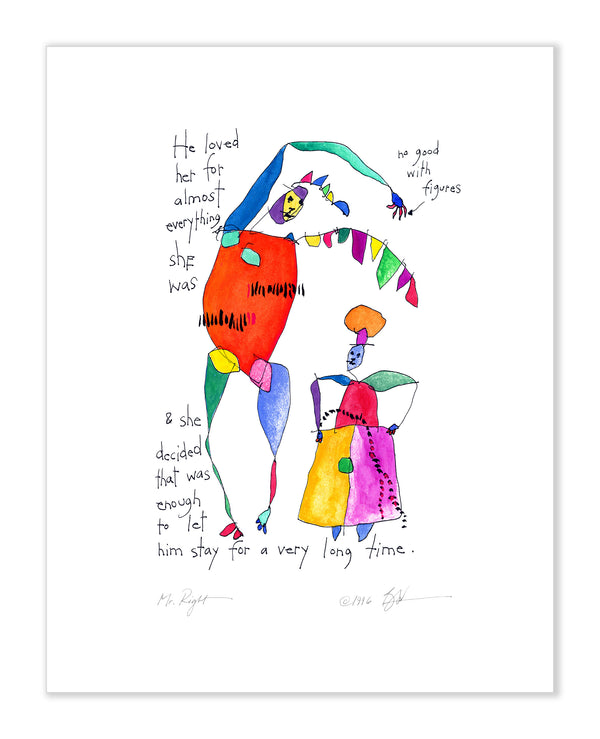 He loved
her for
almost
everything
she
was
no good
with
figures
& she
decided
that was
enough
to let
him stay for a very long time.
Mr. Right
©1996